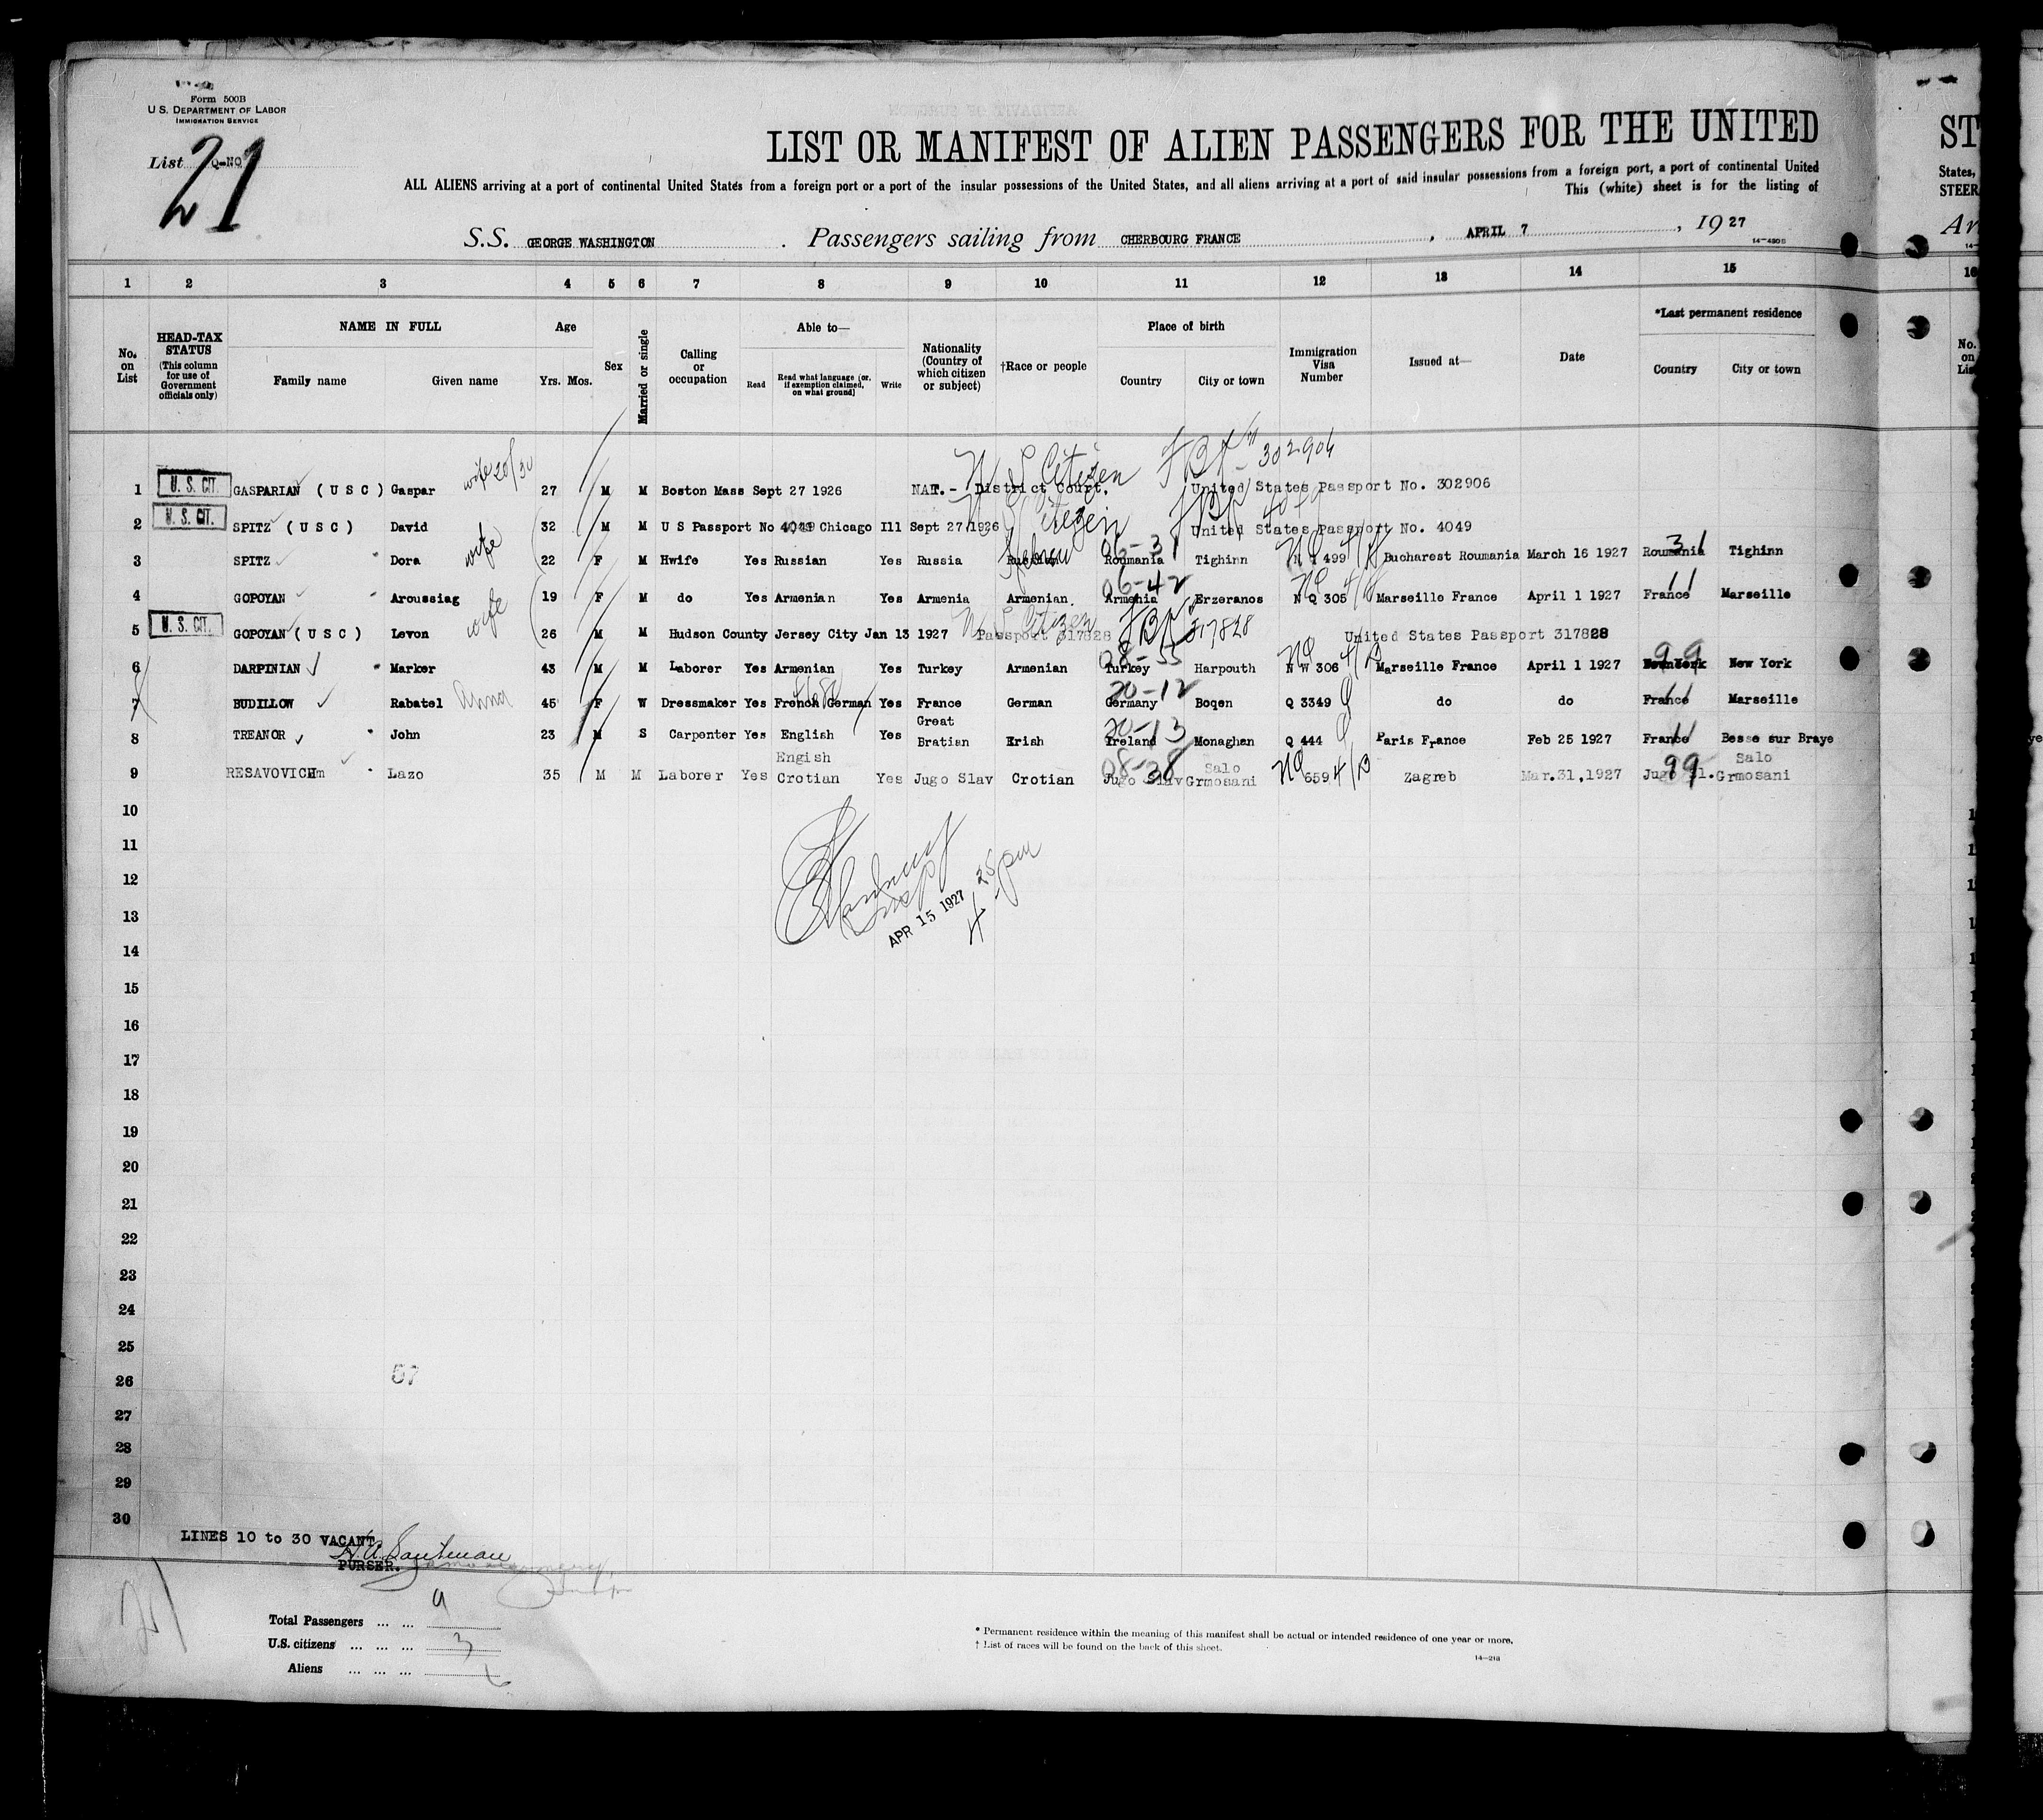 Form 500B
U. S. DEPARTMENT OF LABOR
IMMIGRATION SERVICE
List Q-NO
21
LIST OR MANIFEST OF ALIEN PASSENGERS FOR THE UNITED
ST
ALL ALIENS arriving at a port of continental United States from a foreign port or a port of the insular possessions of the United States, and all aliens arriving at a port of said insular possessions from a foreign port, a port of continental United
States,
This (white) sheet is for the listing of
STEER
S.S. GEORGE WASHINGTON . Passengers sailing from CHERBOURG FRANCE , APRIL 7 , 19 27
1 2 3 4 5 6 7 8 9 10 11 12 13 14 15
No. on List
HEAD-TAX STATUS (This column for use of Government officials only)
NAME IN FULL
Family name Given name
Age
Yrs. Mos.
Sex
Married or single
Calling or occupation
Able to—
Read Read what language (or, if exemption claimed, on what ground) Write
Nationality (Country of which citizen or subject)
†Race or people
Place of birth
Country City or town
Immigration Visa Number
Issued at—
Date
*Last permanent residence
Country City or town
U S Citizen 302906
1 U. S. CIT. GASPARIAN ( U S C ) Gaspar wife 20/30 27 M M Boston Mass Sept 27 1926 NAT. - District Court. United States Passport No. 302906
2 U. S. CIT. SPITZ ( U S C ) David 32 M M U S Passport No 4049 Chicago Ill Sept 27 1926 U S Citizen United States Passport No. 4049
3 SPITZ Dora wife 22 F M Hwife Yes Russian Yes Russia Hebrew 06-31 Roumania Tighinn 499 Bucharest Roumania March 16 1927 Roumania 31 Tighinn
4 GOPOYAN Aroussiag 19 F M do Yes Armenian Yes Armenia Armenian. 06-42 Armenia Erzeranos N Q 305 Marseille France April 1 1927 France 11 Marseille
5 U. S. CIT. GOPOYAN ( U S C ) Levon wife 26 M M Hudson County Jersey City Jan 13 1927 U S Citizen Passport 317828 317828 United States Passport 317828
6 DARPINIAN Marker 43 M M Laborer Yes Armenian Yes Turkey Armenian 08-55 Turkey Harpouth 306 Marseille France April 1 1927 99 New York
7 BUDILLOW Rabatel Anna 45 F W Dressmaker Yes French German Yes France German 20-12 Germany Boqen Q 3349 do do France 11 Marseille
8 TREANOR John 23 M S Carpenter Yes English Yes Great Bratian Erish 20-13 Ireland Monaghan Q 444 Paris France Feb 25 1927 France 11 Besse sur Braye
9 Lazo 35 M M Laborer Yes Engish Crotian Yes Jugo Slav Crotian 08-38 Jugo Slav Salo Grmosani 659 Zagreb Mar.31,1927 99 Salo Grmosani
10
11
12
APR 15 1927 4 25 pm
13
14
15
16
17
18
19
20
21
22
23
24
25
26
57
27
28
29
30
LINES 10 to 30 VACANT
PURSER.
21
Total Passengers ... ... 9
U.S. citizens ... ... ... 3
Aliens ... ... ... 6
* Permanent residence within the meaning of this manifest shall be actual or intended residence of one year or more.
† List of races will be found on the back of this sheet.
14—218